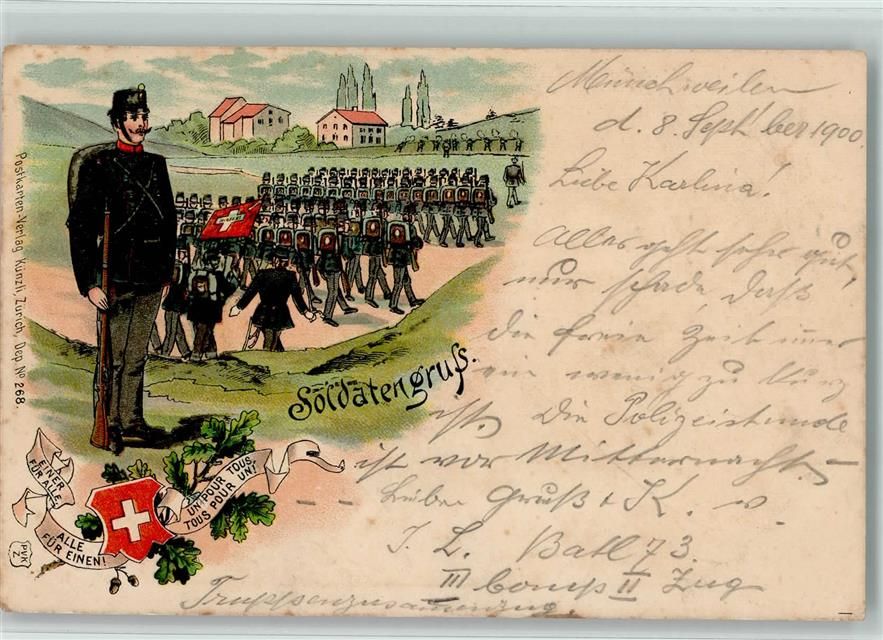 Münchweilen
d. 8. Sept'ber 1900.
Liebe Karlina!
Alles geht sehr gut,
nur schade, daß
die freie Zeit immer
ein wenig zu kurz
ist. Die Polizeistunde
ist vor Mitternacht.
Lieber Gruß + K.
J. L. Batl 73
III Comp II Zug
Truppenzusammenzug.
Soldatengruss.
Postkarten-Verlag Künzli, Zürich, Dep. No 268.
EINER
FÜR ALLE,
ALLE
FÜR EINEN!
UN POUR TOUS
TOUS POUR UN!
PVK
Z